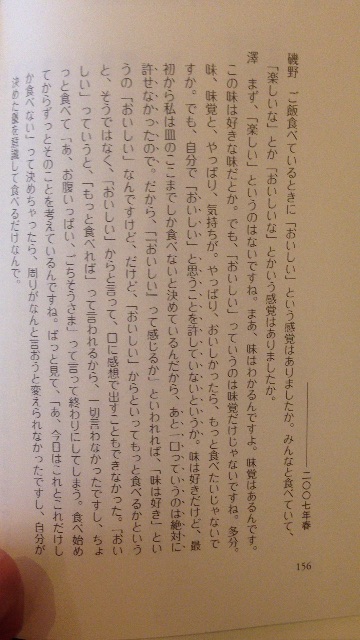 二〇〇七年春
磯野　ご飯食べているときに「おいしい」という感覚はありましたか。みんなと食べていて、
「楽しいな」とか「おいしいな」とかいう感覚はありましたか。
澤　まず、「楽しい」というのはないですね。まあ、味はわかるんですよ。味覚はあるんです。
この味は好きな味だとか。でも、「おいしい」っていうのは味覚だけじゃないですね。多分。
味、味覚と、やっぱり、気持ちが。やっぱり、おいしかったら、もっと食べたいじゃないで
すか。でも、自分で「おいしい」と思うことを許していないというか。味は好きだけど、最
初から私は皿のここまでしか食べないと決めているんだから、あと一口っていうのは絶対に
許せなかったので。だから、「『おいしい』って感じるか」といわれれば、「味は好き」とい
うの「おいしい」なんですけど、だけど、「おいしい」からといってもっと食べるかという
と、そうではなく、「おいしい」からと言って、口に感想で出すこともできなかった。「おい
しい」っていうと、「もっと食べれば」って言われるから、一切言わなかったですし、ちょ
っと食べて「あ、お腹いっぱい、ごちそうさま」って言って終わりにしてしまう。食べ始め
てからずっとそのことを考えているんですね。ぱっと見て、「あ、今日はこれとこれだけし
か食べない」って決めちゃったら、周りがなんと言おうと変えられなかったですし、自分が
決めた量を意識して食べるだけなんで。
156